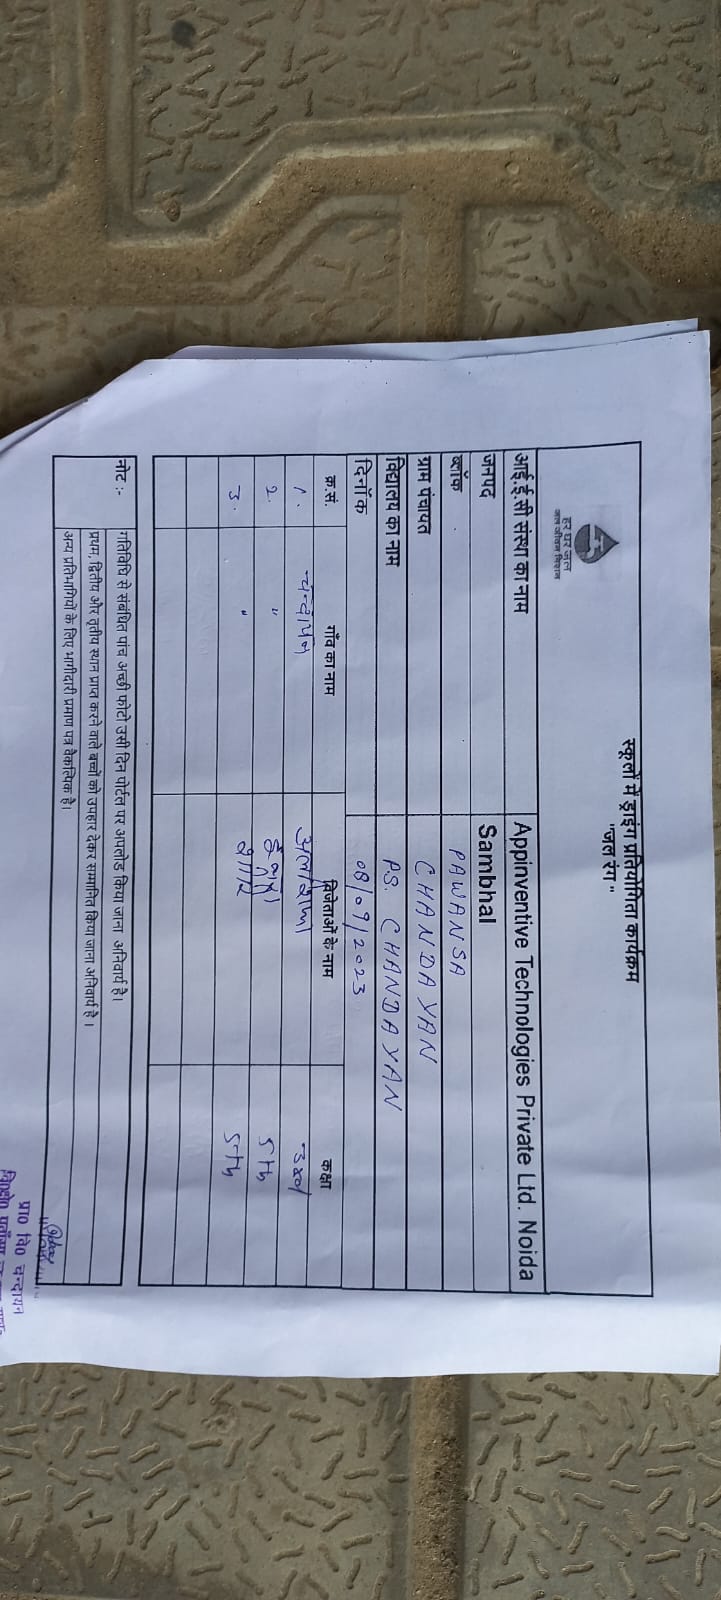 हर घर जल
जल जीवन मिशन
स्कूलों में ड्राइंग प्रतियोगिता कार्यक्रम
"जल रंग"
आई.ई.सी संस्था का नाम Appinventive Technologies Private Ltd. Noida
जनपद Sambhal
ब्लॉक PAWANSA
ग्राम पंचायत CHANDAYAN
विद्यालय का नाम P.S. CHANDAYAN
दिनाँक 08/09/2023
क्र.सं. गाँव का नाम विजेताओं के नाम कक्षा
1. चन्दायन
2. " 5th
3. " 5th
नोट :- गतिविधि से संबंधित पांच अच्छी फोटो उसी दिन पोर्टल पर अपलोड किया जाना अनिवार्य है।
प्रथम, द्वितीय और तृतीय स्थान प्राप्त करने वाले बच्चों को उपहार देकर सम्मानित किया जाना अनिवार्य है ।
अन्य प्रतिभागियों के लिए भागीदारी प्रमाण पत्र वैकल्पिक है।
प्रा० वि० चन्दायन